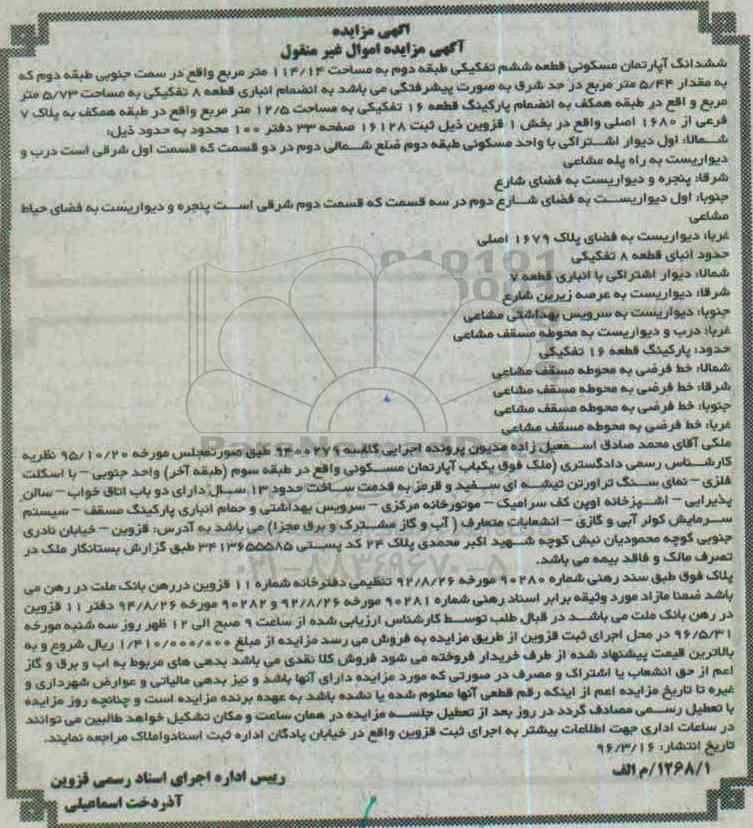 آگهی مزایده
آگهی مزایده اموال غیر منقول
ششدانگ آپارتمان مسکونی قطعه ششم تفکیکی طبقه دوم به مساحت ۱۱۴/۱۴ متر مربع واقع در سمت جنوبی طبقه دوم که
به مقدار ۵/۴۴ متر مربع در حد شرق به صورت پیشرفتگی می باشد به انضمام انباری قطعه ۸ تفکیکی به مساحت ۵/۷۳ متر
مربع و اقع در طبقه همکف به انضمام پارکینگ قطعه ۱۶ تفکیکی به مساحت ۱۲/۵ متر مربع واقع در طبقه همکف به پلاک ۷
فرعی از ۱۶۸۰ اصلی واقع در بخش ۱ قزوین ذیل ثبت ۱۶۱۲۸ صفحه ۳۳ دفتر ۱۰۰ محدود به حدود ذیل:
شمالا: اول دیوار اشتراکی با واحد مسکونی طبقه دوم ضلع شمالی دوم در دو قسمت که قسمت اول شرقی است درب و
دیواریست به راه پله مشاعی
شرقا: پنجره و دیواریست به فضای شارع
جنوبا: اول دیواریست به فضای شارع دوم در سه قسمت که قسمت دوم شرقی است پنجره و دیواریست به فضای حیاط
مشاعی
غربا: دیواریست به فضای پلاک ۱۶۷۹ اصلی
حدود انبای قطعه ۸ تفکیکی
شمالا: دیوار اشتراکی با انباری قطعه ۷
شرقا: دیواریست به عرصه زیرین شارع
جنوبا: دیواریست به سرویس بهداشتی مشاعی
غربا: درب و دیواریست به محوطه مسقف مشاعی
حدود: پارکینگ قطعه ۱۶ تفکیکی
شمالا: خط فرضی به محوطه مسقف مشاعی
شرقا: خط فرضی به محوطه مسقف مشاعی
جنوبا: خط فرضی به محوطه مسقف مشاعی
غربا: خط فرضی به محوطه مسقف مشاعی
ملکی آقای محمد صادق اسمعیل زاده مدیون پرونده اجرایی کلاسه ۹۴۰۰۲۷۹ طبق صورتمجلس مورخه ۹۵/۱۰/۲۰ نظریه
کارشناس رسمی دادگستری (ملک فوق یکباب آپارتمان مسکونی واقع در طبقه سوم (طبقه آخر) واحد جنوبی – با اسکلت
فلزی – نمای سنگ تراورتن تیشه ای سفید و قرمز به قدمت ساخت حدود ۱۳ سال دارای دو باب اتاق خواب – سالن
پذیرایی – اشپزخانه اوپن کف سرامیک – موتورخانه مرکزی – سرویس بهداشتی و حمام انباری پارکینگ مسقف – سیستم
سرمایش کولر آبی و گازی – انشعابات متعارف ( آب و گاز مشترک و برق مجزا) می باشد به آدرس: قزوین – خیابان نادری
جنوبی کوچه محمودیان نبش کوچه شهید اکبر محمدی پلاک ۲۴ کد پستی ۳۴۱۳۶۵۵۵۸۵ طبق گزارش بستانکار ملک در
تصرف مالک و فاقد بیمه می باشد.
پلاک فوق طبق سند رهنی شماره ۹۰۲۸۰ مورخه ۹۲/۸/۲۶ تنظیمی دفترخانه شماره ۱۱ قزوین دررهن بانک ملت در رهن می
باشد ضمنا مازاد مورد وثیقه برابر اسناد رهنی شماره ۹۰۲۸۱ مورخه ۹۲/۸/۲۶ و ۹۰۲۸۲ مورخه ۹۴/۸/۲۶ دفتر ۱۱ قزوین
در رهن بانک ملت می باشد در قبال طلب توسط کارشناس ارزیابی شده از ساعت ۹ صبح الی ۱۲ ظهر روز سه شنبه مورخه
۹۶/۵/۳۱ در محل اجرای ثبت قزوین از طریق مزایده به فروش می رسد مزایده از مبلغ ۱/۴۱۰/۰۰۰/۰۰۰ ریال شروع و به
بالاترین قیمت پیشنهاد شده از طرف خریدار فروخته می شود فروش کلا نقدی می باشد بدهی های مربوط به اب و برق و گاز
اعم از حق انشعاب یا اشتراک و مصرف در صورتی که مورد مزایده دارای آنها باشد و نیز بدهی مالیاتی و عوارض شهرداری و
غیره تا تاریخ مزایده اعم از اینکه رقم قطعی آنها معلوم شده یا نشده باشد به عهده برنده مزایده است و چنانچه روز مزایده
با تعطیل رسمی مصادف گردد در روز بعد از تعطیل جلسه مزایده در همان ساعت و مکان تشکیل خواهد طالبین می توانند
در ساعات اداری جهت اطلاعات بیشتر به اجرای ثبت قزوین واقع در خیابان پادگان اداره ثبت اسنادواملاک مراجعه نمایند.
تاریخ انتشار: ۹۶/۳/۱۶
۱۲۶۸/۱/م الف
رییس اداره اجرای اسناد رسمی قزوین
آذردخت اسماعیلی
ParsNamadData
۰۲۱-۸۸۳۴۹۶۷۰-۵